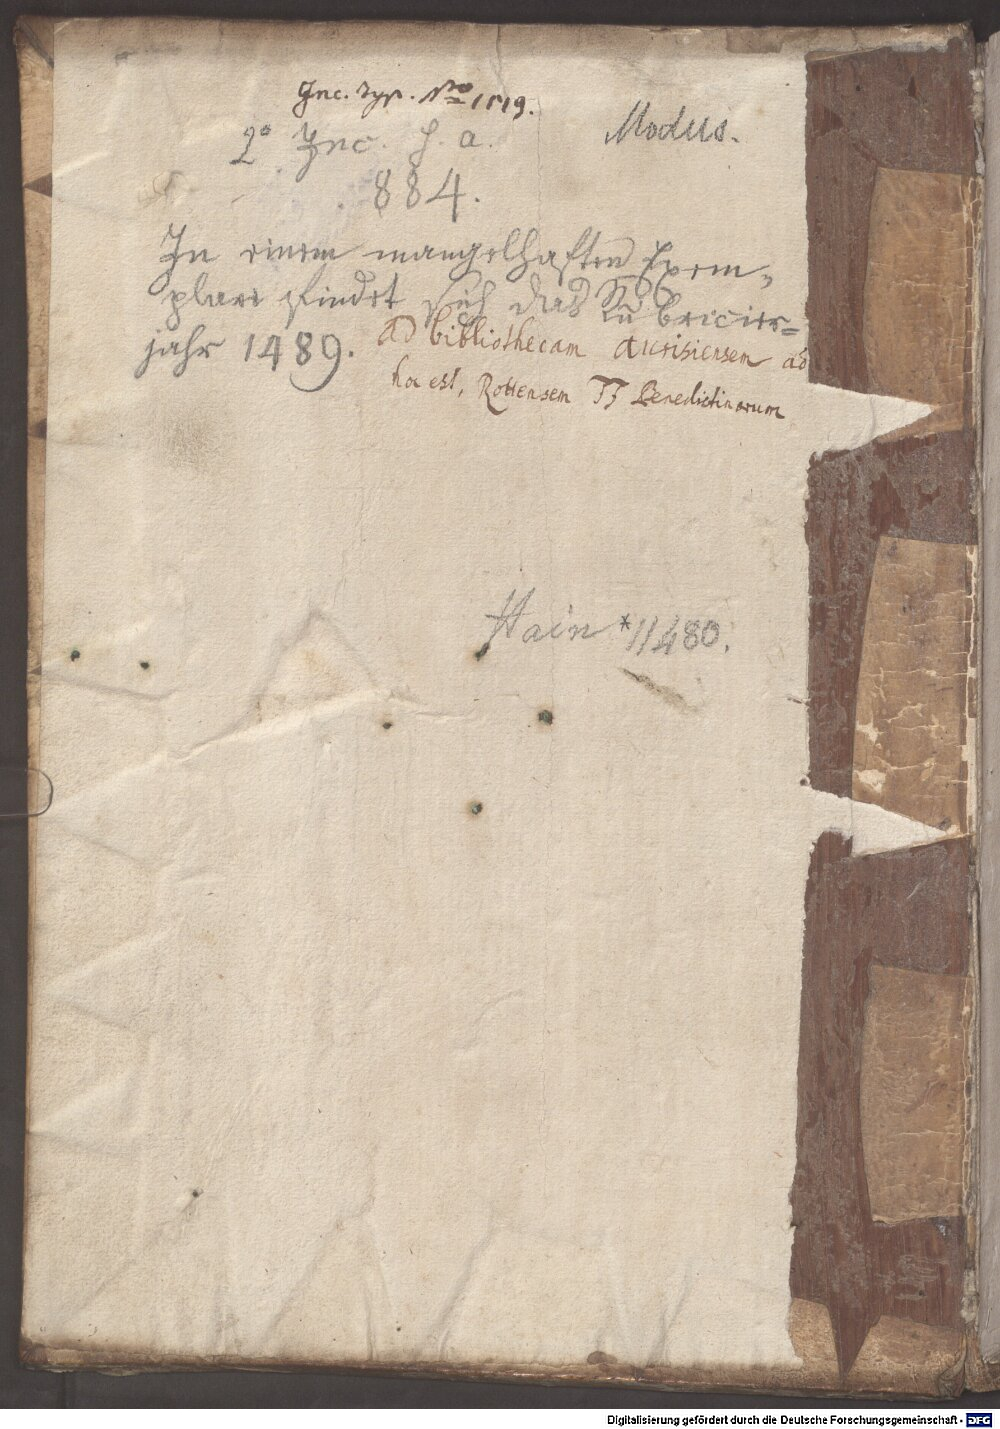 Inc. Typ. No 1519.
2° Inc. s. a.
Modus.
884.
In einem mangelhaften Exem-
plare findet sich das Rubricir-
jahr 1489.
ad bibliothecam Aurisiensem ad
hoc est, Rottensem FF Benedictinorum
Hain *11480.
Digitalisierung gefördert durch die Deutsche Forschungsgemeinschaft - DFG